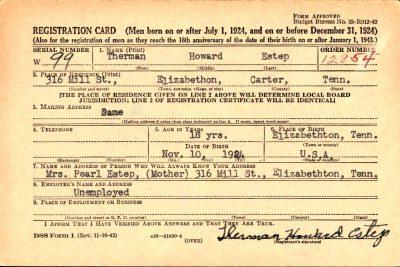 Form Approved
Budget Bureau No. 33-R012-42
REGISTRATION CARD (Men born on or after July 1, 1924, and on or before December 31, 1924)
(Also for the registration of men as they reach the 18th anniversary of the date of their birth on or after January 1, 1943.)
SERIAL NUMBER 1. Name (Print) ORDER NUMBER
W 99 Therman Howard Estep 12854
(First) (Middle) (Last)
2. Place of Residence (Print)
316 Mill St., Elizabethon, Carter, Tenn.
(Number and street) (Town, township, village, or city) (County) (State)
[THE PLACE OF RESIDENCE GIVEN ON LINE 2 ABOVE WILL DETERMINE LOCAL BOARD
JURISDICTION; LINE 2 OF REGISTRATION CERTIFICATE WILL BE IDENTICAL]
3. Mailing Address
Same
[Mailing address if other than place indicated on line 2. If same, insert word same]
4. Telephone 5. Age in Years 6. Place of Birth
18 yrs. Elizabethton, Tenn.
Date of Birth (Town or county)
Nov. 10, 1924 U.S.A.
(Exchange) (Number) (Mo.) (Day) (Yr.) (State or country)
7. Name and Address of Person Who Will Always Know Your Address
Mrs. Pearl Estep, (Mother) 316 Mill St., Elizabethton, Tenn.
8. Employer's Name and Address
Unemployed
9. Place of Employment or Business
(Number and street or R. F. D. number) (Town) (County) (State)
I Affirm That I Have Verified Above Answers and That They Are True.
DSS Form 1 (Rev. 11-16-42) 16—21630-4 Therman Howard Estep
(OVER) (Registrant's signature)